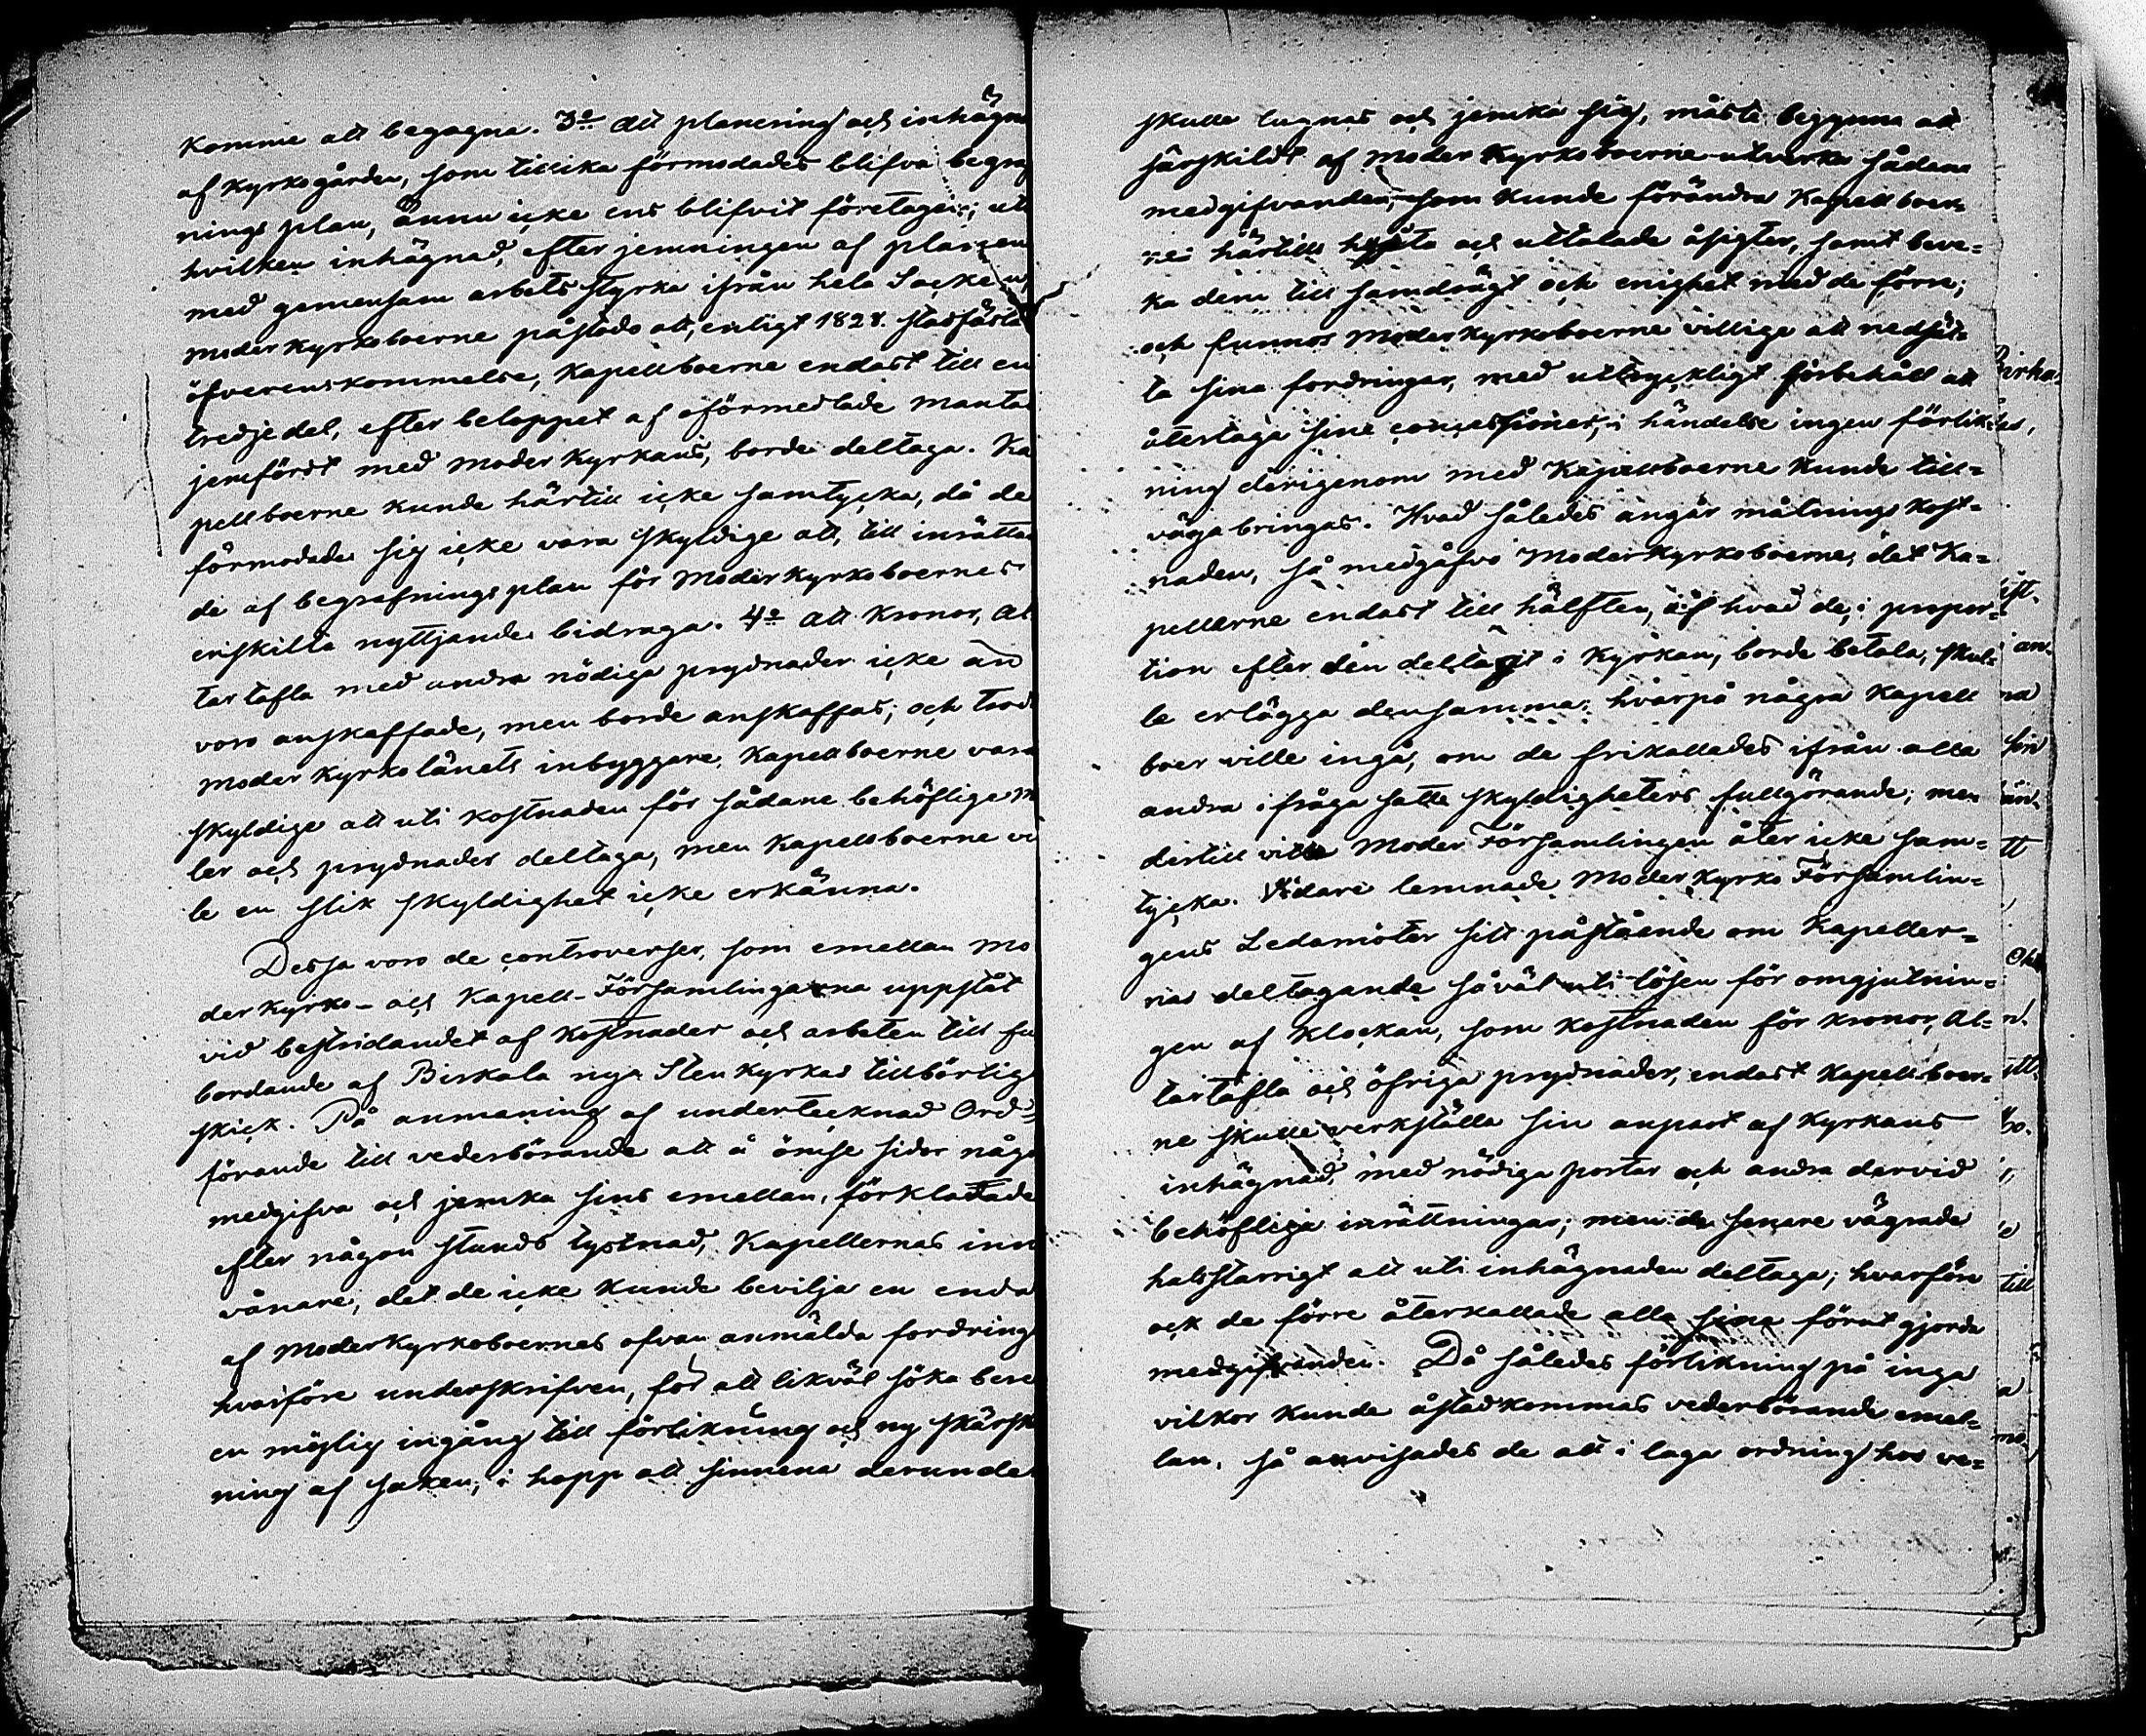 Komme att begagna. 3:o att planering och inhägn
af Kyrkogården, som tillika förmodades blifva begraf
nings plan, ännu icke ens blifvit företagen; uti
hvilken inhägnad, efter jemningen af planen
med gemensam arbets styrka ifrån hela Socken,
Moderkyrkoboerne påstodo att, enligt 1828. stadfästa
öfverenskommelse, Kapellboerne endast till en
tredjedel, efter beloppet af oförmedlade mantal
jemfördt med Moder Kyrkans, borde deltaga. Ka
pellboerne kunde härtill icke samtycka, då de
förmodade sig icke vara skyldige att, till inrättan
de af begrafningsplan för Moderkyrkoboernes
enskilta nyttjande bidraga. 4:o att Kronor, Al
tartafla med andra nödiga prydnader icke än
voro anskaffade, men borde anskaffas; och trod
Moder Kyrkolänets inbyggare, Kapellboerne vara
skyldige att uti kostnaden för sådane behöflige M
ler och prydnader deltaga, men Kapellboerne vi
le en slik skyldighet icke erkänna.
Dessa voro de controverser, som emellan Mo
derkyrko- och Kapell-Församlingarna uppstått
vid bestridandet af kostnader och arbeten till ful
bordande af Birkala nya Stenkyrkas tillbörliga
skick. På anmaning af undertecknad Ord-
förande till vederbörande att å ömse sidor någo
medgifva och jemka sins emellan, förklarade
efter någon stunds tystnad, Kapellernas inn
vånare, det de icke kunde bevilja en enda
af Moderkyrkoboernes ofvan anmälda fordringa
hvarföre underskrifven, för att likväl söka bere
en möjlig ingång till förlikning och ny skärsk
ning af saken, i hopp att sinnena derunder
skulle lugnas och jemka sig, måste begynna att
särskildt af Moder Kyrkoboerne utverka sådana
medgifvanden, som kunde förändra Kapellboer-
ne härtill hysta och uttalade åsigter, samt beve-
ka dem till samdrägt och enighet med de förre;
och funnos Moderkyrkoboerne villige att nedsät-
ta sina fordringar, med uttryckligt förbehåll att
återtaga sine concessioner, i händelse ingen förlik-
ning derigenom med Kapellboerne kunde till-
väga bringas. Hvad således angår målnings kost-
naden, så medgåfvo Moderkyrkoboerne, det Ka-
pellerne endast till hälften, af hvad de, i propor-
tion efter den deltagit i Kyrkan, borde betala, skul-
le erlägga densamma; hvarpå några Kapell
boer ville ingå, om de frikallades ifrån alla
andra i fråga satte skyldigheters fullgörande; men
dertill ville Moder Församlingen åter icke sam-
tycka. Vidare lemnade Moder Kyrko Församlin-
gens Ledamöter sitt påstående om Kapeller-
nas deltagande såväl uti lösen för omgjutnin-
gen af Klockan, som kostnaden för kronor, Al-
tartafla och öfriga prydnader, endast Kapellboer-
ne skulle verkställa sin anpart af Kyrkans
inhägnad, med nödiga portar och andra dervid
behöfliga inrättningar; men de senare vägrade
halsstarrigt att uti inhägnaden deltaga; hvarföre
ock de förre återkallade alla sina förut gjorda
medgifvanden. Då således förlikning på inga
vilkor kunde åstadkommas vederbörande emel-
lan, så anvisades de att i laga ordning hos ve-